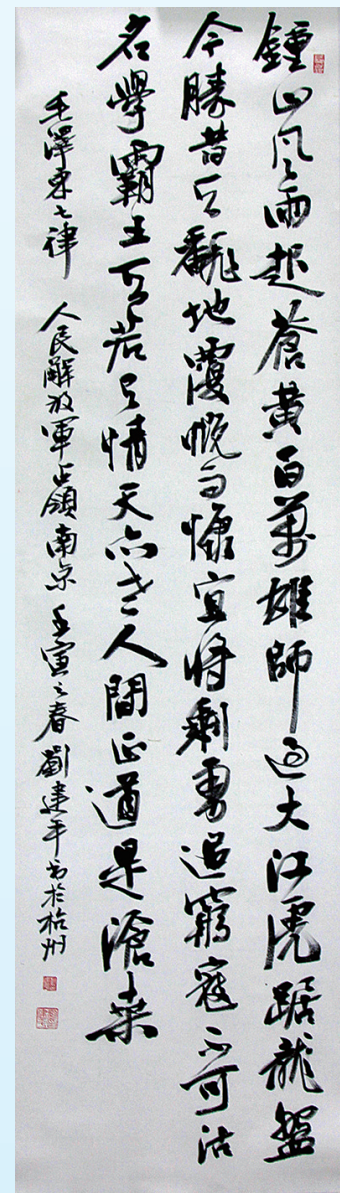 鍾山風雨起蒼黃百萬雄師過大江虎踞龍盤
今勝昔天翻地覆慨而慷宜將剩勇追窮寇不可沽
名學霸王天若有情天亦老人間正道是滄桑
毛澤東七律 人民解放軍占領南京 壬寅之春 劉建平書於杭州